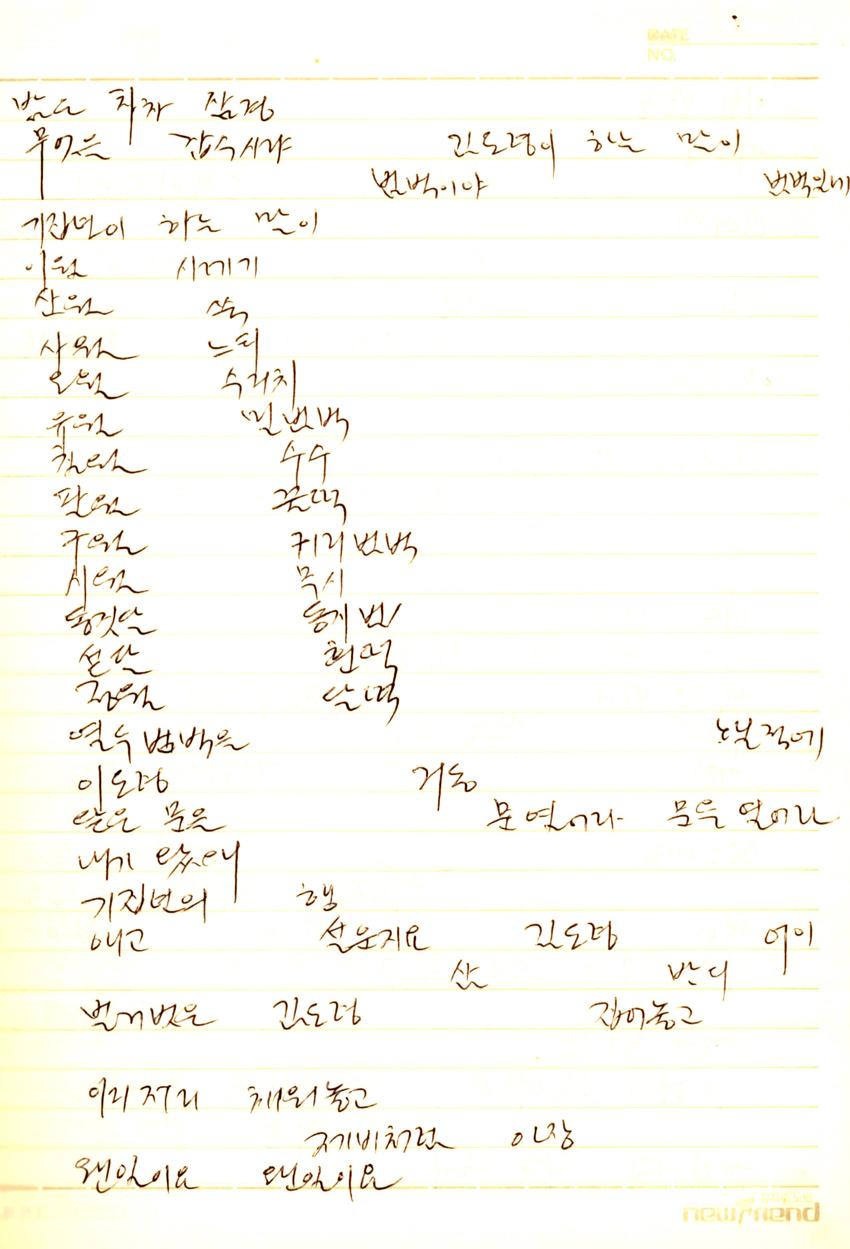 밤도 차차 삼경
무엇을 잡숙시랴 김도령이 하는 말이
범벅이야 범벅일네
기집년이 하는 말이
이월 시래기
삼월 쑥
사월 느티
오월 수리치
유월 밀범벅
칠월 수수
팔월 꿀떡
구월 귀리범벅
시월 무시
동짓달 동지 범
섣달 흰떡
정월 달떡
열두 범벅은 노닐적에
이도령 거동
닫은 문을 문 열어라 문을 열어라
내가 왔네
기집년의 행
애고 설운지요 김도령 어이
벌거벗은 김도령 집어놓고
이리저리 채워놓고
제비처럼 이장
왠일이요 왠일이요